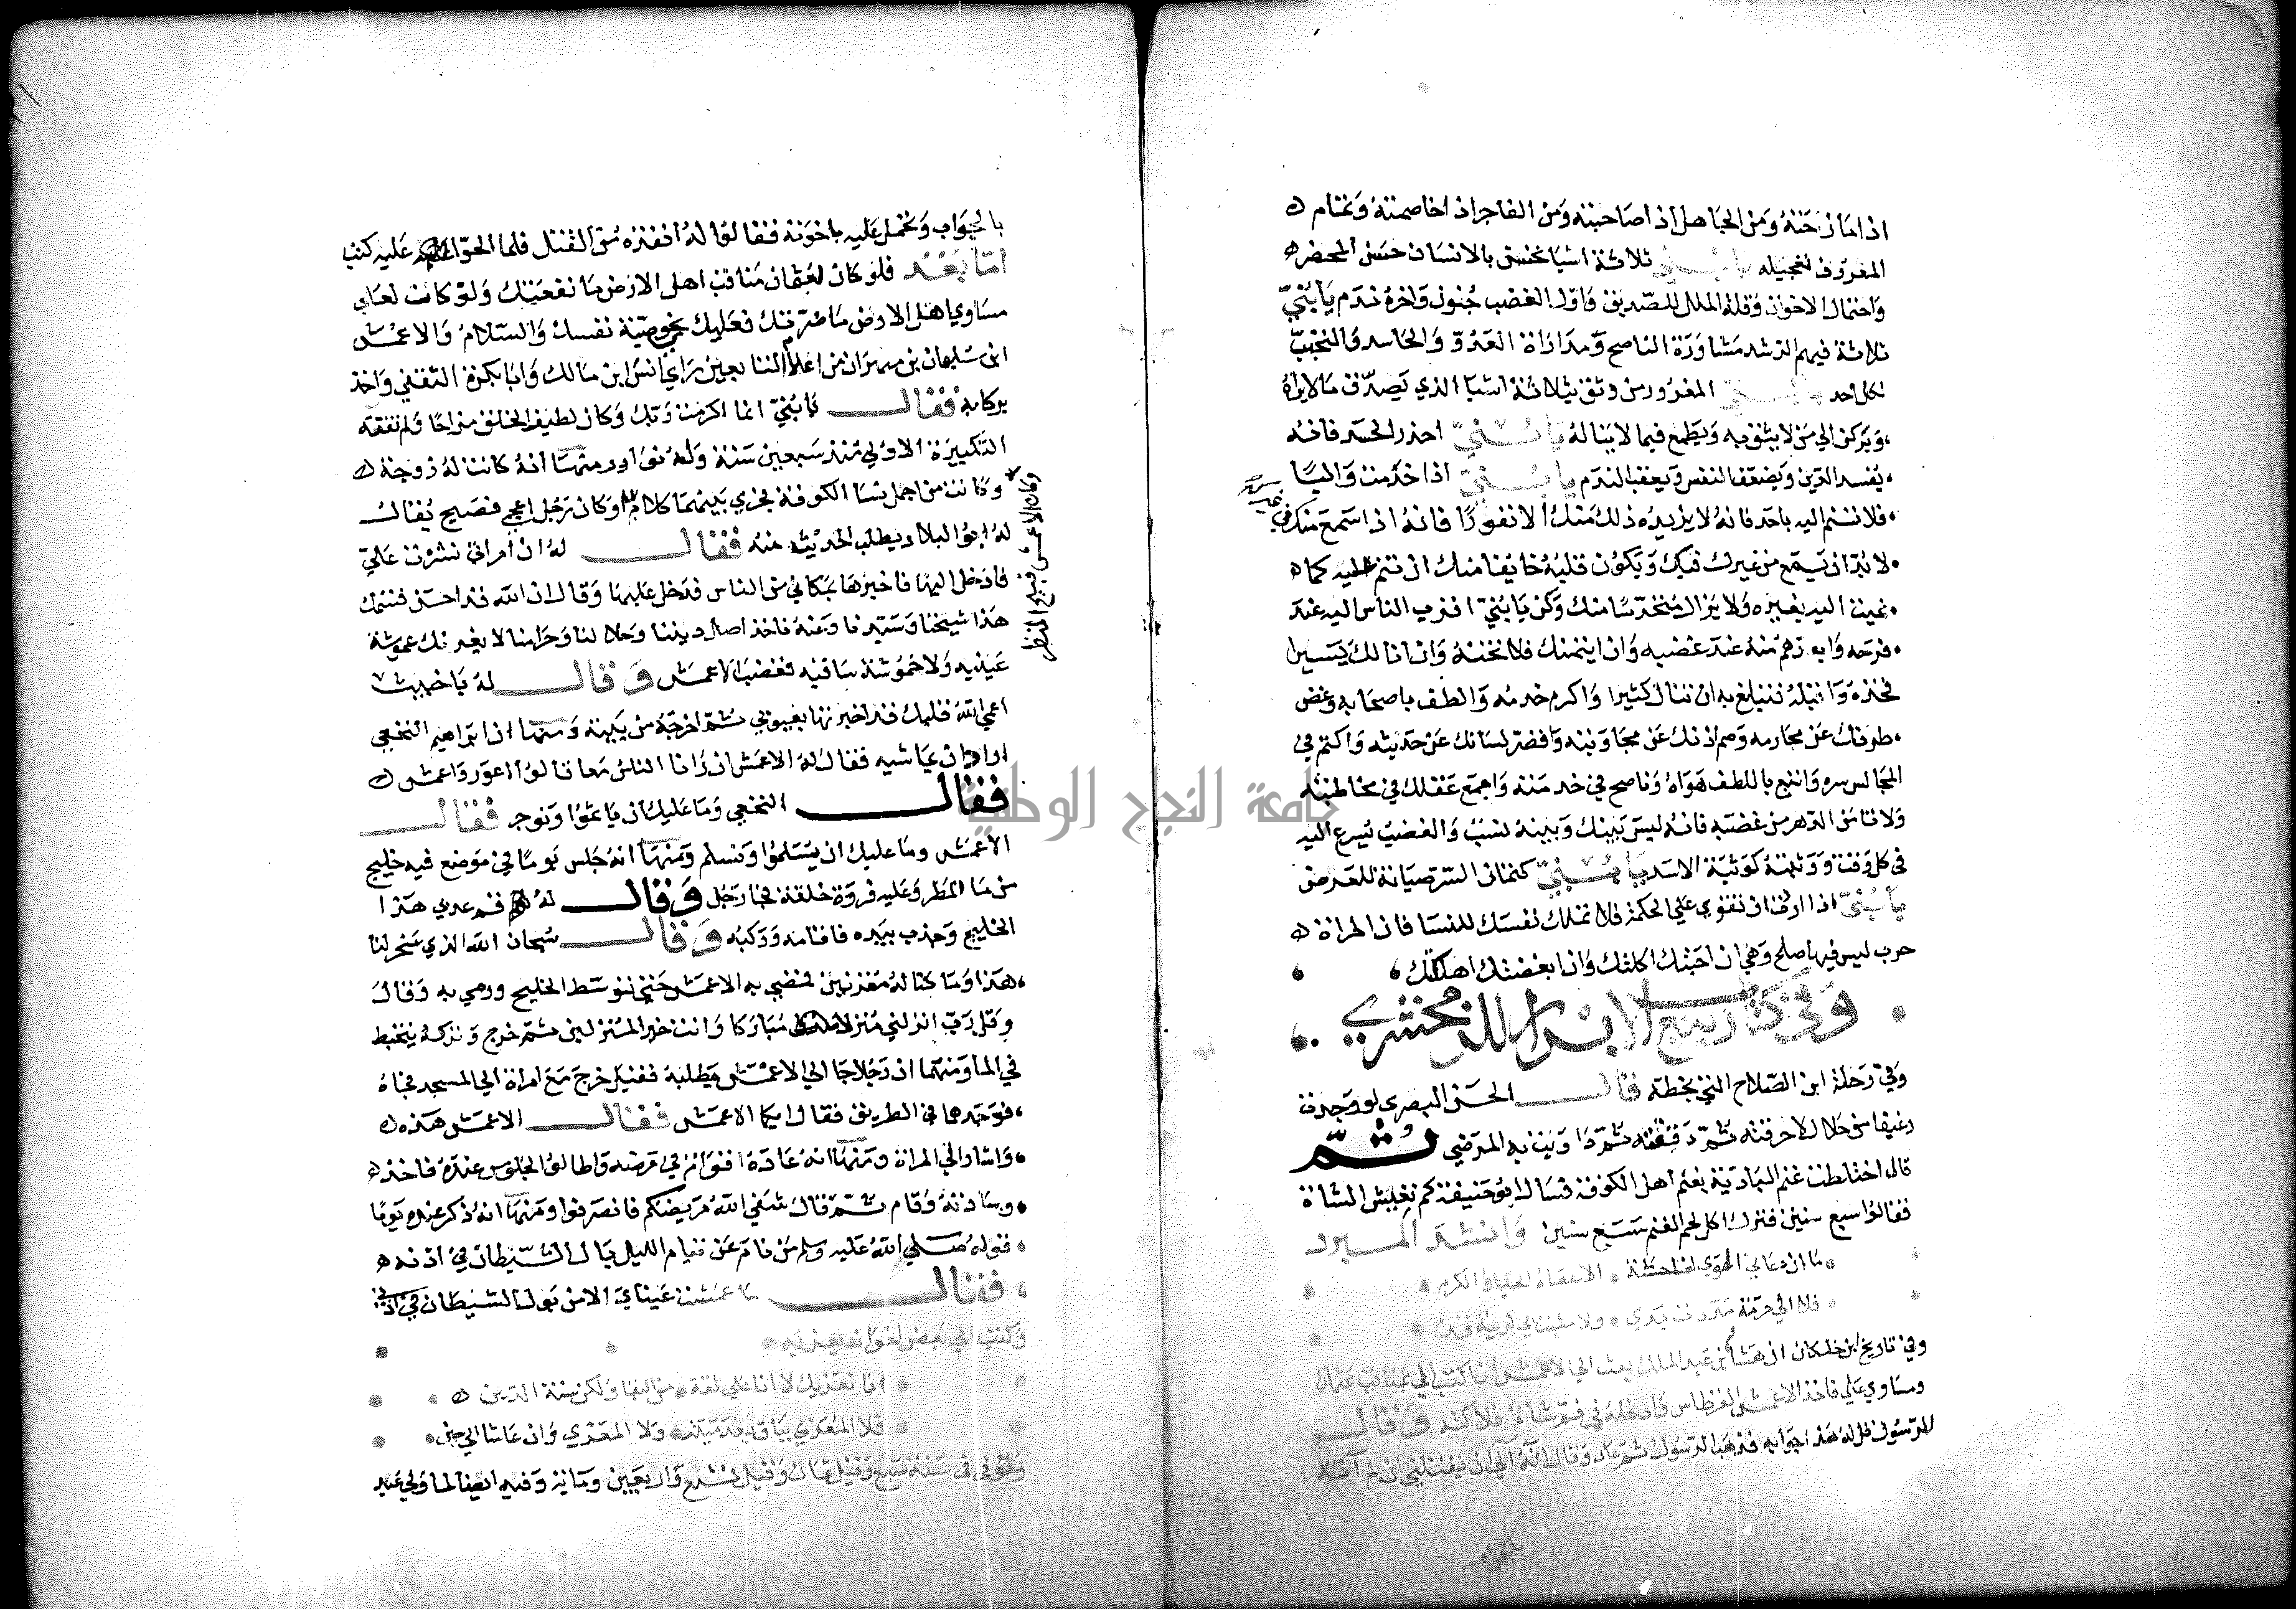 اذا مازحته ومن الجاهل اذا صاحبته ومن الفاجر اذا خاصمته وتمام
المعروف تعجيله يا بني ثلاثة اشيا تحسن بالانسان حسن المحضر
واحتمال الاخوان وقلة الملل للصديق واول الغضب جنون واخره ندم يا بني
ثلاثة فيهم الرشد مشاورة الناصح ومداراة العدو والحاسد والتحبب
لكل احد يا بني المغرور من وثق بثلاثة اشيا الذي يصدق ما لا يراه
ويركن الي من لا يثق به ويطمع فيما لا يناله يا بني احذر الحسد فانه
يفسد الدين ويضعف النفس ويعقب الندم يا بني اذا خدمت واليا
فلا تنم اليه باحد فانه لا يزيده ذلك منك الا نفورا فانه اذا سمع منك في
غيرك
لا بد ان يسمع من غيرك فيك ويكون قلبه خايفا منك ان تنم عليه كما
نميت اليه بغيره ولا يزال متحرسا منك وكن يا بني اقرب الناس اليه عند
فرحه وابعدهم منه عند غضبه وان ايتمنك فلا تخنه وان انالك يسيرا
فخذه واقبله فتبلغ به ان تنال كثيرا واكرم خدمه والطف باصحابه وغض
طرفك عن محارمه وصم اذنك عن مجاوبته واقصر لسانك عن حديثه واكتم في
المجالس سره واتبع باللطف هواه وناصح في خدمته واجمع عقلك في مخاطبته
ولا تامن الدهر من غضبه فانه ليس بينك وبينه نسب والغضب يسرع اليه
في كل وقت ووثبته كوثبة الاسد يا بني كتمان السر صيانة للعرض
يا بني اذا اردت ان تقوي علي الحكمة فلا تملك نفسك للنسا فان المراة
حرب ليس فيها صلح وهي ان احبتك اكلتك وان ابغضتك اهلكتك
وفي كتاب ربيع الابرار للزمخشري
وفي رحلة ابن الصلاح التي بخطه قال الحسن البصري لو وجدت
رغيفا من حلال لاحرقته ثم دققته ثم داويت به المرضي ثم
قال اختلطت غنم البادية بغنم اهل الكوفة فسال ابو حنيفة كم تعيش الشاة
فقالوا سبع سنين فترك اكل لحم الغنم سبع سنين وانشد المبرد
ما ان دعاني الهوي لفاحشة الا نهاني الحيا والكرم
فلا الي حرمة مددت يدي ولا مشت بي لريبة قدم
وفي تاريخ ابن خلكان ان هشام بن عبد الملك بعث الي الاعمش ان اكتب الي بمناقب عثمان
ومساوي علي فاخذ الاعمش القرطاس وادخله في فم شاة فلاكته وقال
للرسول قل له هذا جوابه فذهب الرسول ثم عاد وقال انه آلي ان يقتلني ان لم آته
بالجواب
بالجواب وتحمل عليه باخوته فقالوا له افتده من القتل فلما الحوا عليه كتب
اما بعد فلو كان لعثمان مناقب اهل الارض ما نفعتك ولو كانت لعلي
مساوي اهل الارض ما ضرتك فعليك بخويصة نفسك والسلام والاعمش
ابن سليمان بن مهران من اعلام التابعين راي انس ابن مالك وابا بكرة الثقفي واخذ
بركابه فقال يا بني انما اكرمت ربك وكان لطيف الخلق مزاحا ولم تفته
التكبيرة الاولي منذ سبعين سنة وله نوادر منها انه كانت له زوجة
وكانت من اجمل نسا الكوفة فجري بينهما كلام وكان رجل اعجمي فصيح يقال
وكان الاعمش قبيح المنظر
له ابو البلاد يطلب الحديث منه فقال له ان امراتي نشزت علي
فادخل اليها فاخبرها بمكاني من الناس فدخل عليها وقال ان الله قد احسن قسمك
هذا شيخنا وسيدنا وعنه ناخذ اصل ديننا وحلالنا وحرامنا لا يغرنك عموشة
عينيه ولا خموشة ساقيه فغضب الاعمش وقال له يا خبيث
اعمي الله قلبك قد اخبرتها بعيوبي ثم اخرجه من بيته ومنها ان ابراهيم النخعي
اراد ان يماشيه فقال له الاعمش ان رانا الناس معا قالوا اعور واعمش
فقال النخعي وما عليك ان ياثموا ونوجر فقال
الاعمش وما عليك ان يسلموا ونسلم ومنها انه جلس يوما في موضع فيه خليج
من ما المطر وعليه فروة خلقة فجا رجل وقال له قم عدي هذا
الخليج وجذب بيده فاقامه وركبه وقال سبحان الله الذي سخر لنا
هذا وما كنا له مقرنين فمضي به الاعمش حتي توسط الخليج ورمي به وقال
وقل رب انزلني منزلا مباركا وانت خير المنزلين ثم خرج وتركه يتخبط
في الما ومنها ان رجلا جا الي الاعمش يطلبه فقيل خرج مع امراة الي المسجد فجاه
فوجدهما في الطريق فقال ايكما الاعمش فقال الاعمش هذه
واشار الي المراة ومنها انه عاده اقوام في مرضه واطالوا الجلوس عنده فاخذ
وسادته وقام ثم قال شفي الله مريضكم فانصرفوا ومنها انه ذكر عنده يوما
قوله صلي الله عليه وسلم من نام عن قيام الليل بال الشيطان في اذنه
فقال ما عمشت عيناي الا من بول الشيطان في اذني
وكتب الي بعض اخوانه يعزيه
انا نعزيك لا انا علي ثقة من البقا ولكن سنة الدين
فلا المعزي بباق بعد ميته ولا المعزي وان عاشا الي حين
وتوفي في سنة سبع وقيل ثمان وقيل تسع واربعين وماية وفيه ايضا لما ولي عمر